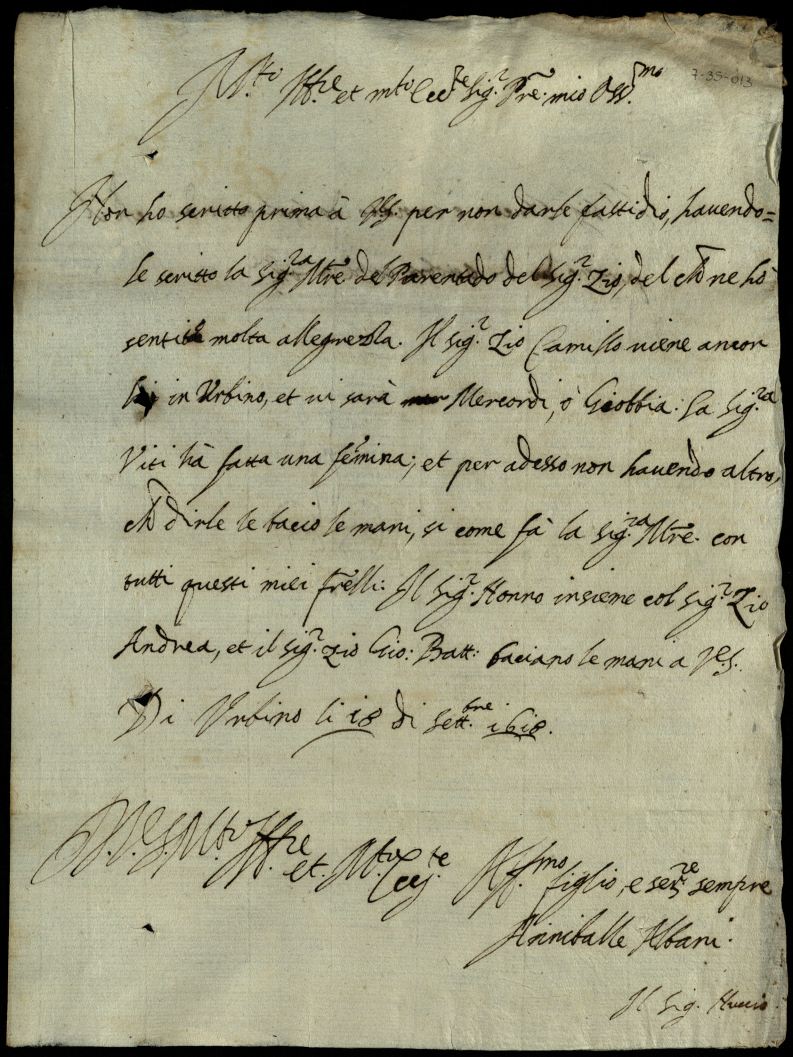 M.to Ill.re et m.to Ecc.te Sig.r P.re mio Oss.mo
7-35-013
Non ho scritto prima à VS. per non darle fastidio, havendo=
le scritto la Sig.ra M.re del Parentado del Sig.r Zio, del ch̃ ne hò
sentito molta allegrezza. Il sig.r Zio Camillo viene ancor
lui in Urbino, et vi sarà Mercordi, ò Giobbia. La Sig.ra
Viti hà fatta una femina; et per adesso non havendo altro,
ch̃ dirle le bacio le mani, si come fà la sig.ra M.re con
tutti questi miei fr̃elli. Il sig.r Nonno insieme col sig.r Zio
Andrea, et il sig.r Zio Gio: Batt: baciano le mani a V.S.
Di Urbino li 18 di Sett.bre 1618.
D. V. S. M.to Ill.re et M.to Ecc.te Aff.mo figlio, e ser.re sempre
Anniballe Albani.
Il Sig.